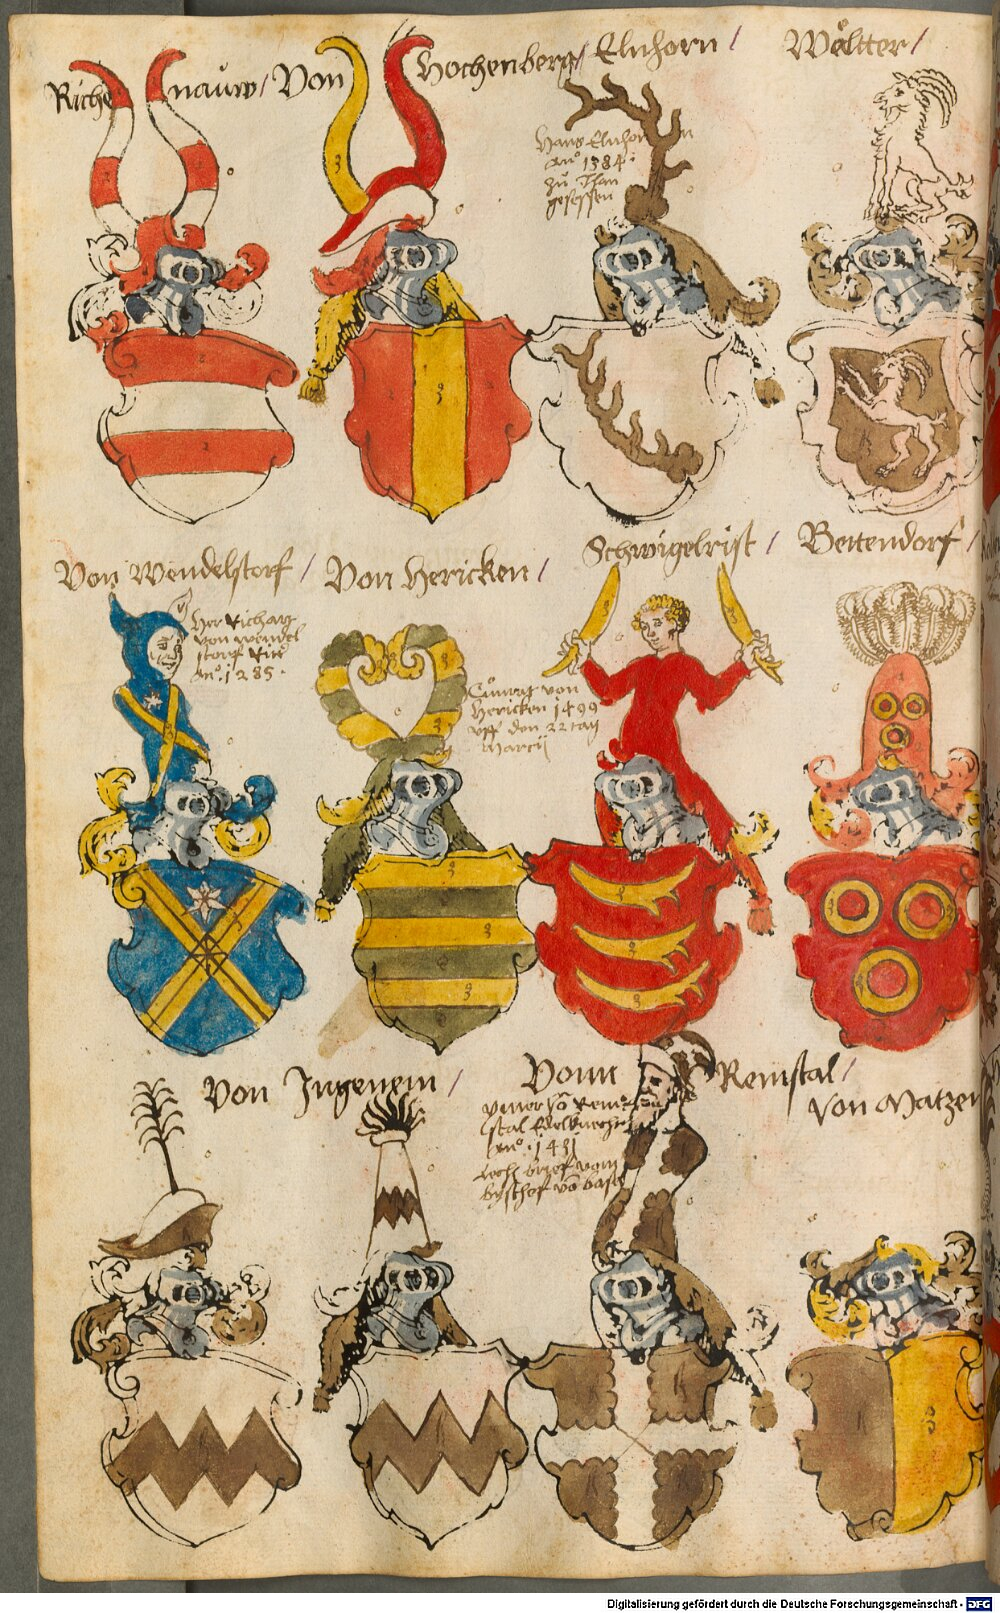 Richenauw / Von Hochenberg / Elnhorn / Wöltter /
Hans Elnhorn
Añº 1384.
zu Than
gesessen
Von Wendelstorf / Von Hericken / Schwigelrist / Bettendorf /
Her Richart
von wendel
storf Rit
Añº. 1285.
Cůnrat von
Hericken 1499
vff den 22 tag
Marcii
Von Ingenem / Vonn Remstal /
Von Matzen
stal Edelknecht
Añº. 1431
brief vom
byschof võ basel
Digitalisierung gefördert durch die Deutsche Forschungsgemeinschaft - DFG